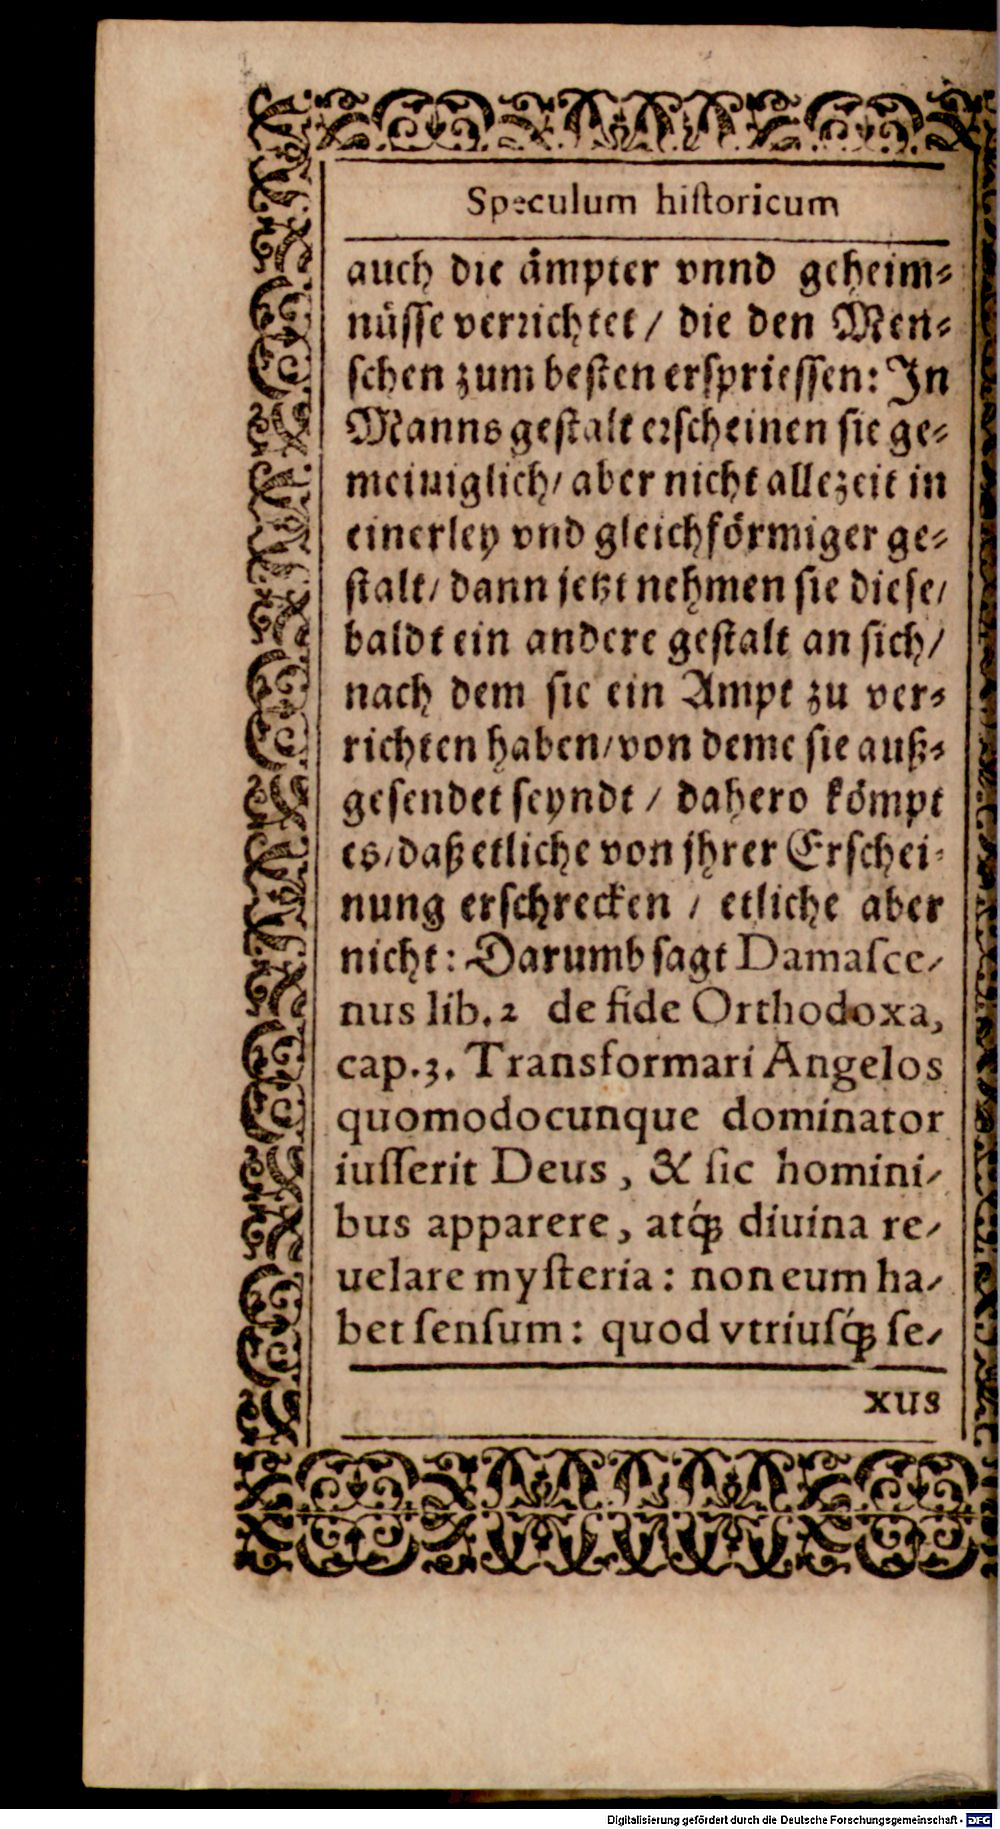 Speculum hiſtoricum
auch die ämpter vnnd geheim⸗
nüſſe verrichtet / die den Men⸗
ſchen zum beſten erſprieſſen: In
Manns geſtalt erſcheinen ſie ge⸗
meiniglich / aber nicht allezeit in
einerley vnd gleichförmiger ge⸗
ſtalt / dann jetzt nehmen ſie dieſe /
baldt ein andere geſtalt an ſich /
nach dem ſie ein Ampt zu ver⸗
richten haben / von deme ſie auß⸗
geſendet ſeyndt / dahero kömpt
es / daß etliche von jhrer Erſchei⸗
nung erſchrecken / etliche aber
nicht: Darumb ſagt Damaſce-
nus lib. 2 de fide Orthodoxa,
cap. 3. Transformari Angelos
quomodocunque dominator
iuſſerit Deus, & ſic homini-
bus apparere, atq́; diuina re-
uelare myſteria: non eum ha-
bet ſenſum: quod vtriuſq́; ſe-
xus
Digitalisierung gefördert durch die Deutsche Forschungsgemeinschaft - DFG